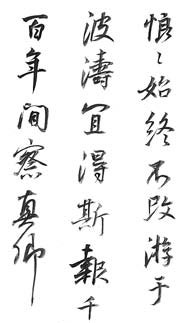 慎〻始終不改游于
波濤宜得斯報千
百年间察真卿